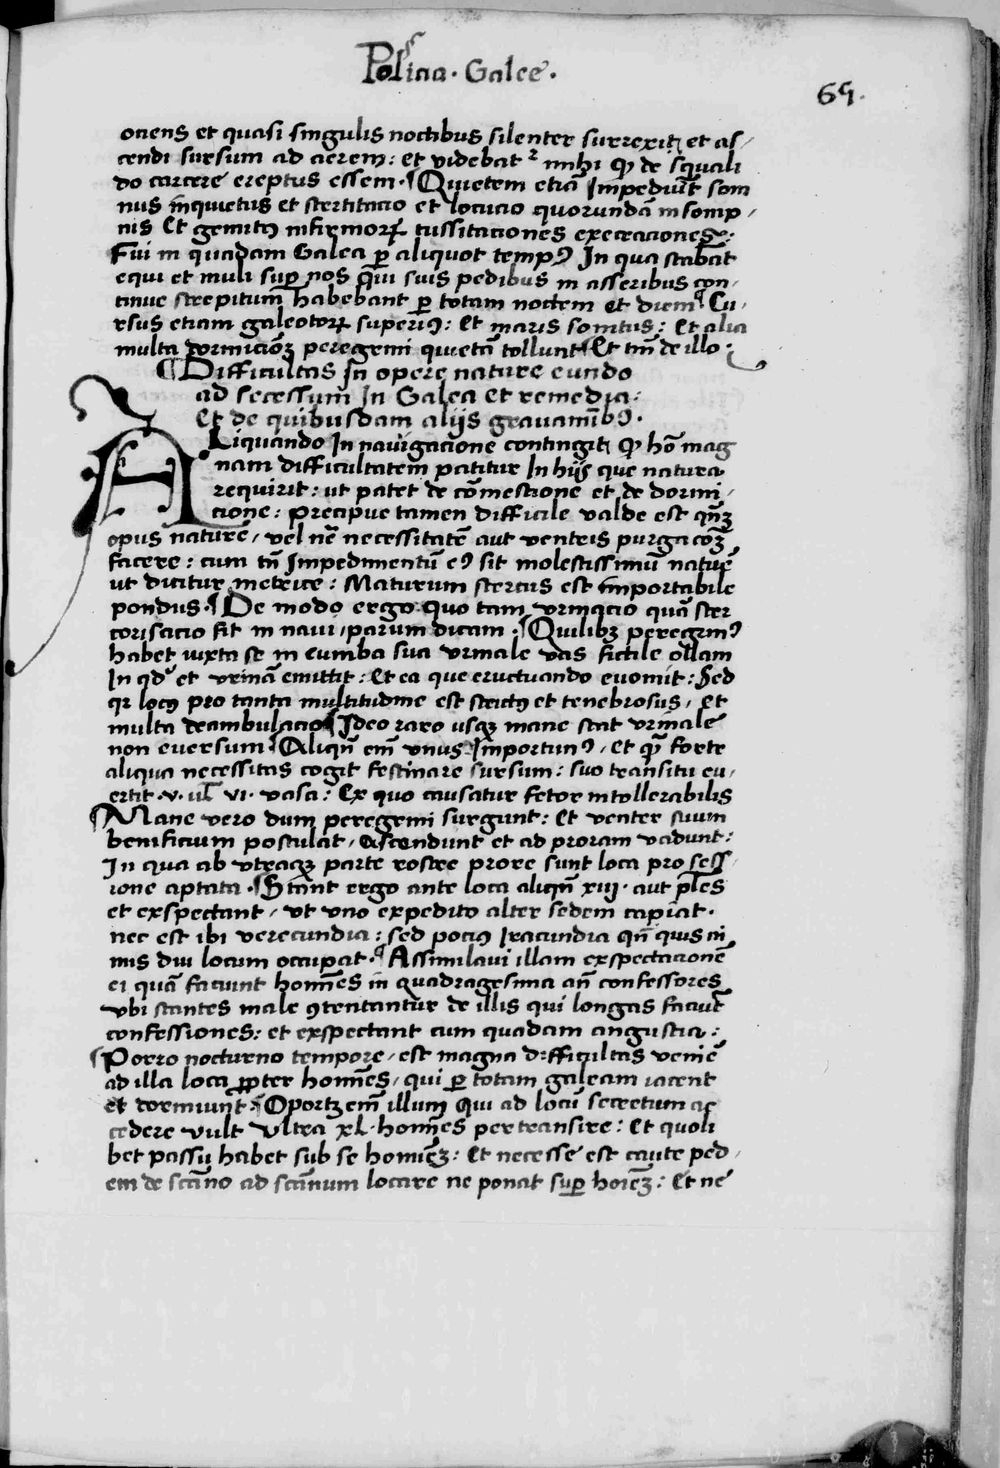 Policia · Galee ·
65.
onens et quasi singulis noctibus silenter surrexi et as/
cendi sursum ad aerem: et videbatr mihi ꝙ de squali
do carcere ereptus essem · ¶ Quietem etiā Impediūt som
nus inquietus et stertitacio et locucio quorundā in somp/
nis Et gemitꝰ infirmorꝝ tussitaciones execraciones:
Fui in quadam Galea ꝑ aliquot tempꝰ In qua stabāt
equi et muli suꝑ nos qui suis pedibus in asseribus con/
tinue strepitum habebant ꝑ totam noctem et diem ¶ Cu/
rsus etiam galeotorꝝ superiꝰ: Et maris sonitus: Et alia
multa dormicioēꝫ peregrini quietā tollunt ¶ Et tm̄ de illo ·
¶ Difficultas In opere nature eundo
ad secessum In Galea et remedia:
Et de quibusdam alijs grauaminibꝰ ·
ALiquando In nauigacione contingit ꝙ hō mag
nam difficultatem patitur In hijs que natura
requirit: ut patet de cōmestione et de dormi/
cione: precipue tamen difficile valde est qn̄ꝫ
opus nature / vel ne necessitatē aut ventris purgacōꝫ
facere: cum tn̄ Impedimentū eꝰ sit molestissimū nature
ut dicitur metrice: Maturum stercus est importabile
pondus · ¶ De modo ergo quo tam vrinacio quā ster
corisacio fit in naui / parum dicam · ¶ Quilibꝫ peregrinꝰ
habet iuxta se in cumba sua vrinale vas fictile ollam
In qd' et vrinā emittit: Et ea que eructuando euomit: Sed
qr locꝰ pro tanta multitudine est strictꝰ et tenebrosus / Et
multa deambulacio ¶ Ideo raro usqꝫ mane stat vrinale
non euersum ¶ Aliqn̄ em̄ vnus Importunꝰ / Et que forte
aliqua necessitas cogit festinare sursum: suo transitu eu/
ertit · v · ul' vi · vasa: Ex quo causatur fetor intollerabilis
¶ Mane vero dum peregrini surgunt: Et venter suum
benificium postulat / ascendunt et ad proram vadunt:
In qua ab vtraqꝫ parte rostre prore sunt loca pro sess/
ione aptata · ¶ Stant ergo ante loca aliqn̄ xiij · aut ples
et exspectant / vt vno expedito alter sedem capiat ·
nec est ibi verecundia: sed pociꝰ Iracundia qn̄ quis ni
mis diu locum occupat · ¶ Assimilaui illam exspectacionē
ei quā faciunt homines in quadragesima an̄ confessores
vbi stantes male ꝯtentantur de illis qui longas faciūt
confessiones: et exspectant cum quadam angustia:
¶ Porro nocturno tempore / est magna difficultas venire
ad illa loca ꝓpter homines / qui ꝑ totam galeam iacent
et dormiunt · ¶ Oportꝫ em̄ illum qui ad locū secretum ac
cedere vult vltra xl · homines pertransire: Et quoli
bet passu habet sub se homineꝫ: Et necesse est caute ped/
em de scāno ad scānum locare ne ponat suꝑ hoīeꝫ: Et ne